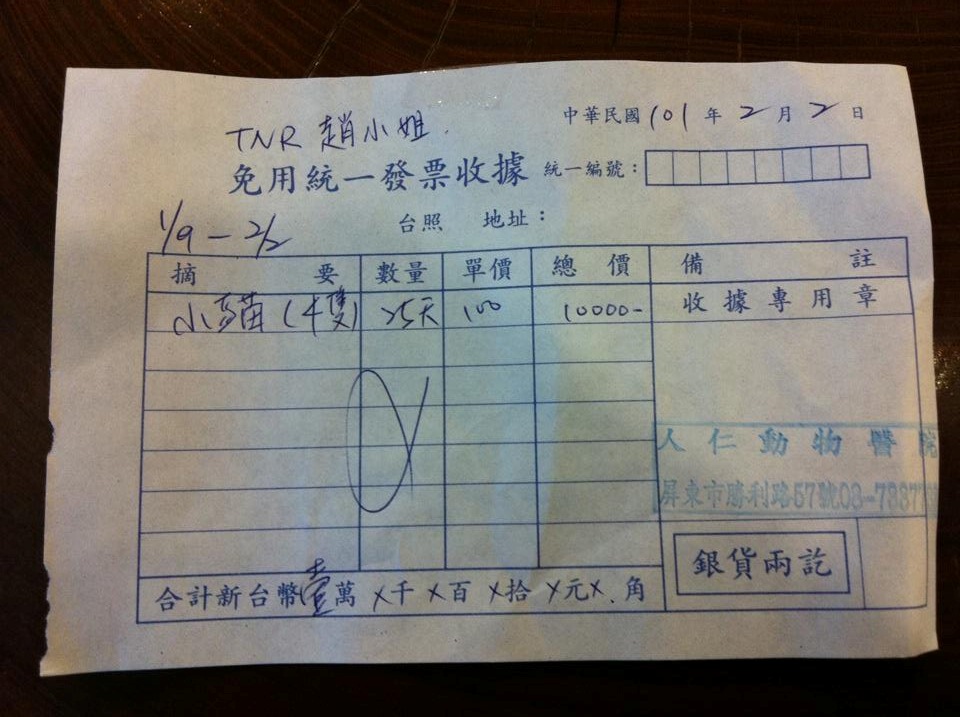 中華民國101年2月2日
TNR 趙小姐
免用統一發票收據 統一編號：
1/9 - 2/2 台照 地址：
摘要 數量 單價 總價 備註
小貓(4隻) 25天 100 10000- 收據專用章
人仁動物醫院
屏東市勝利路57號08-7337
合計新台幣壹萬X千X百X拾X元X角
銀貨兩訖